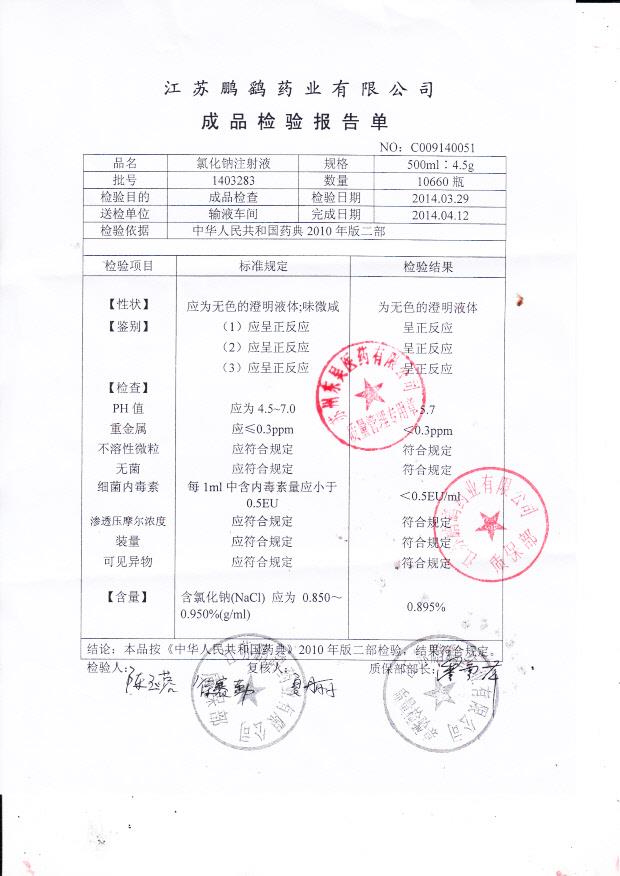 江苏鹏鹞药业有限公司
成品检验报告单
NO：C009140051
品名 氯化钠注射液 规格 500ml：4.5g
批号 1403283 数量 10660 瓶
检验目的 成品检查 检验日期 2014.03.29
送检单位 输液车间 完成日期 2014.04.12
检验依据 中华人民共和国药典 2010 年版二部
检验项目 标准规定 检验结果
【性状】 应为无色的澄明液体;味微咸 为无色的澄明液体
【鉴别】 （1）应呈正反应 呈正反应
（2）应呈正反应 呈正反应
（3）应呈正反应 呈正反应
【检查】
PH 值 应为 4.5~7.0 5.7
重金属 应≤0.3ppm <0.3ppm
不溶性微粒 应符合规定 符合规定
无菌 应符合规定 符合规定
细菌内毒素 每 1ml 中含内毒素量应小于 <0.5EU/ml
0.5EU
渗透压摩尔浓度 应符合规定 符合规定
装量 应符合规定 符合规定
可见异物 应符合规定 符合规定
【含量】 含氯化钠(NaCl) 应为 0.850～ 0.895%
0.950%(g/ml)
结论：本品按《中华人民共和国药典》2010 年版二部检验，结果符合规定。
检验人： 复核人： 质保部部长：
苏州东吴医药有限公司
质量管理专用章
江苏鹏鹞药业有限公司
质保部